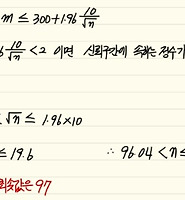 m ≤ 300 + 1.96 10/√n
10/√n < 2 이면 신뢰구간에 속하는 정수가
√n ≤ 1.96×10
≤ 19.6 ∴ 96.04 < n ≤
최솟값은 97